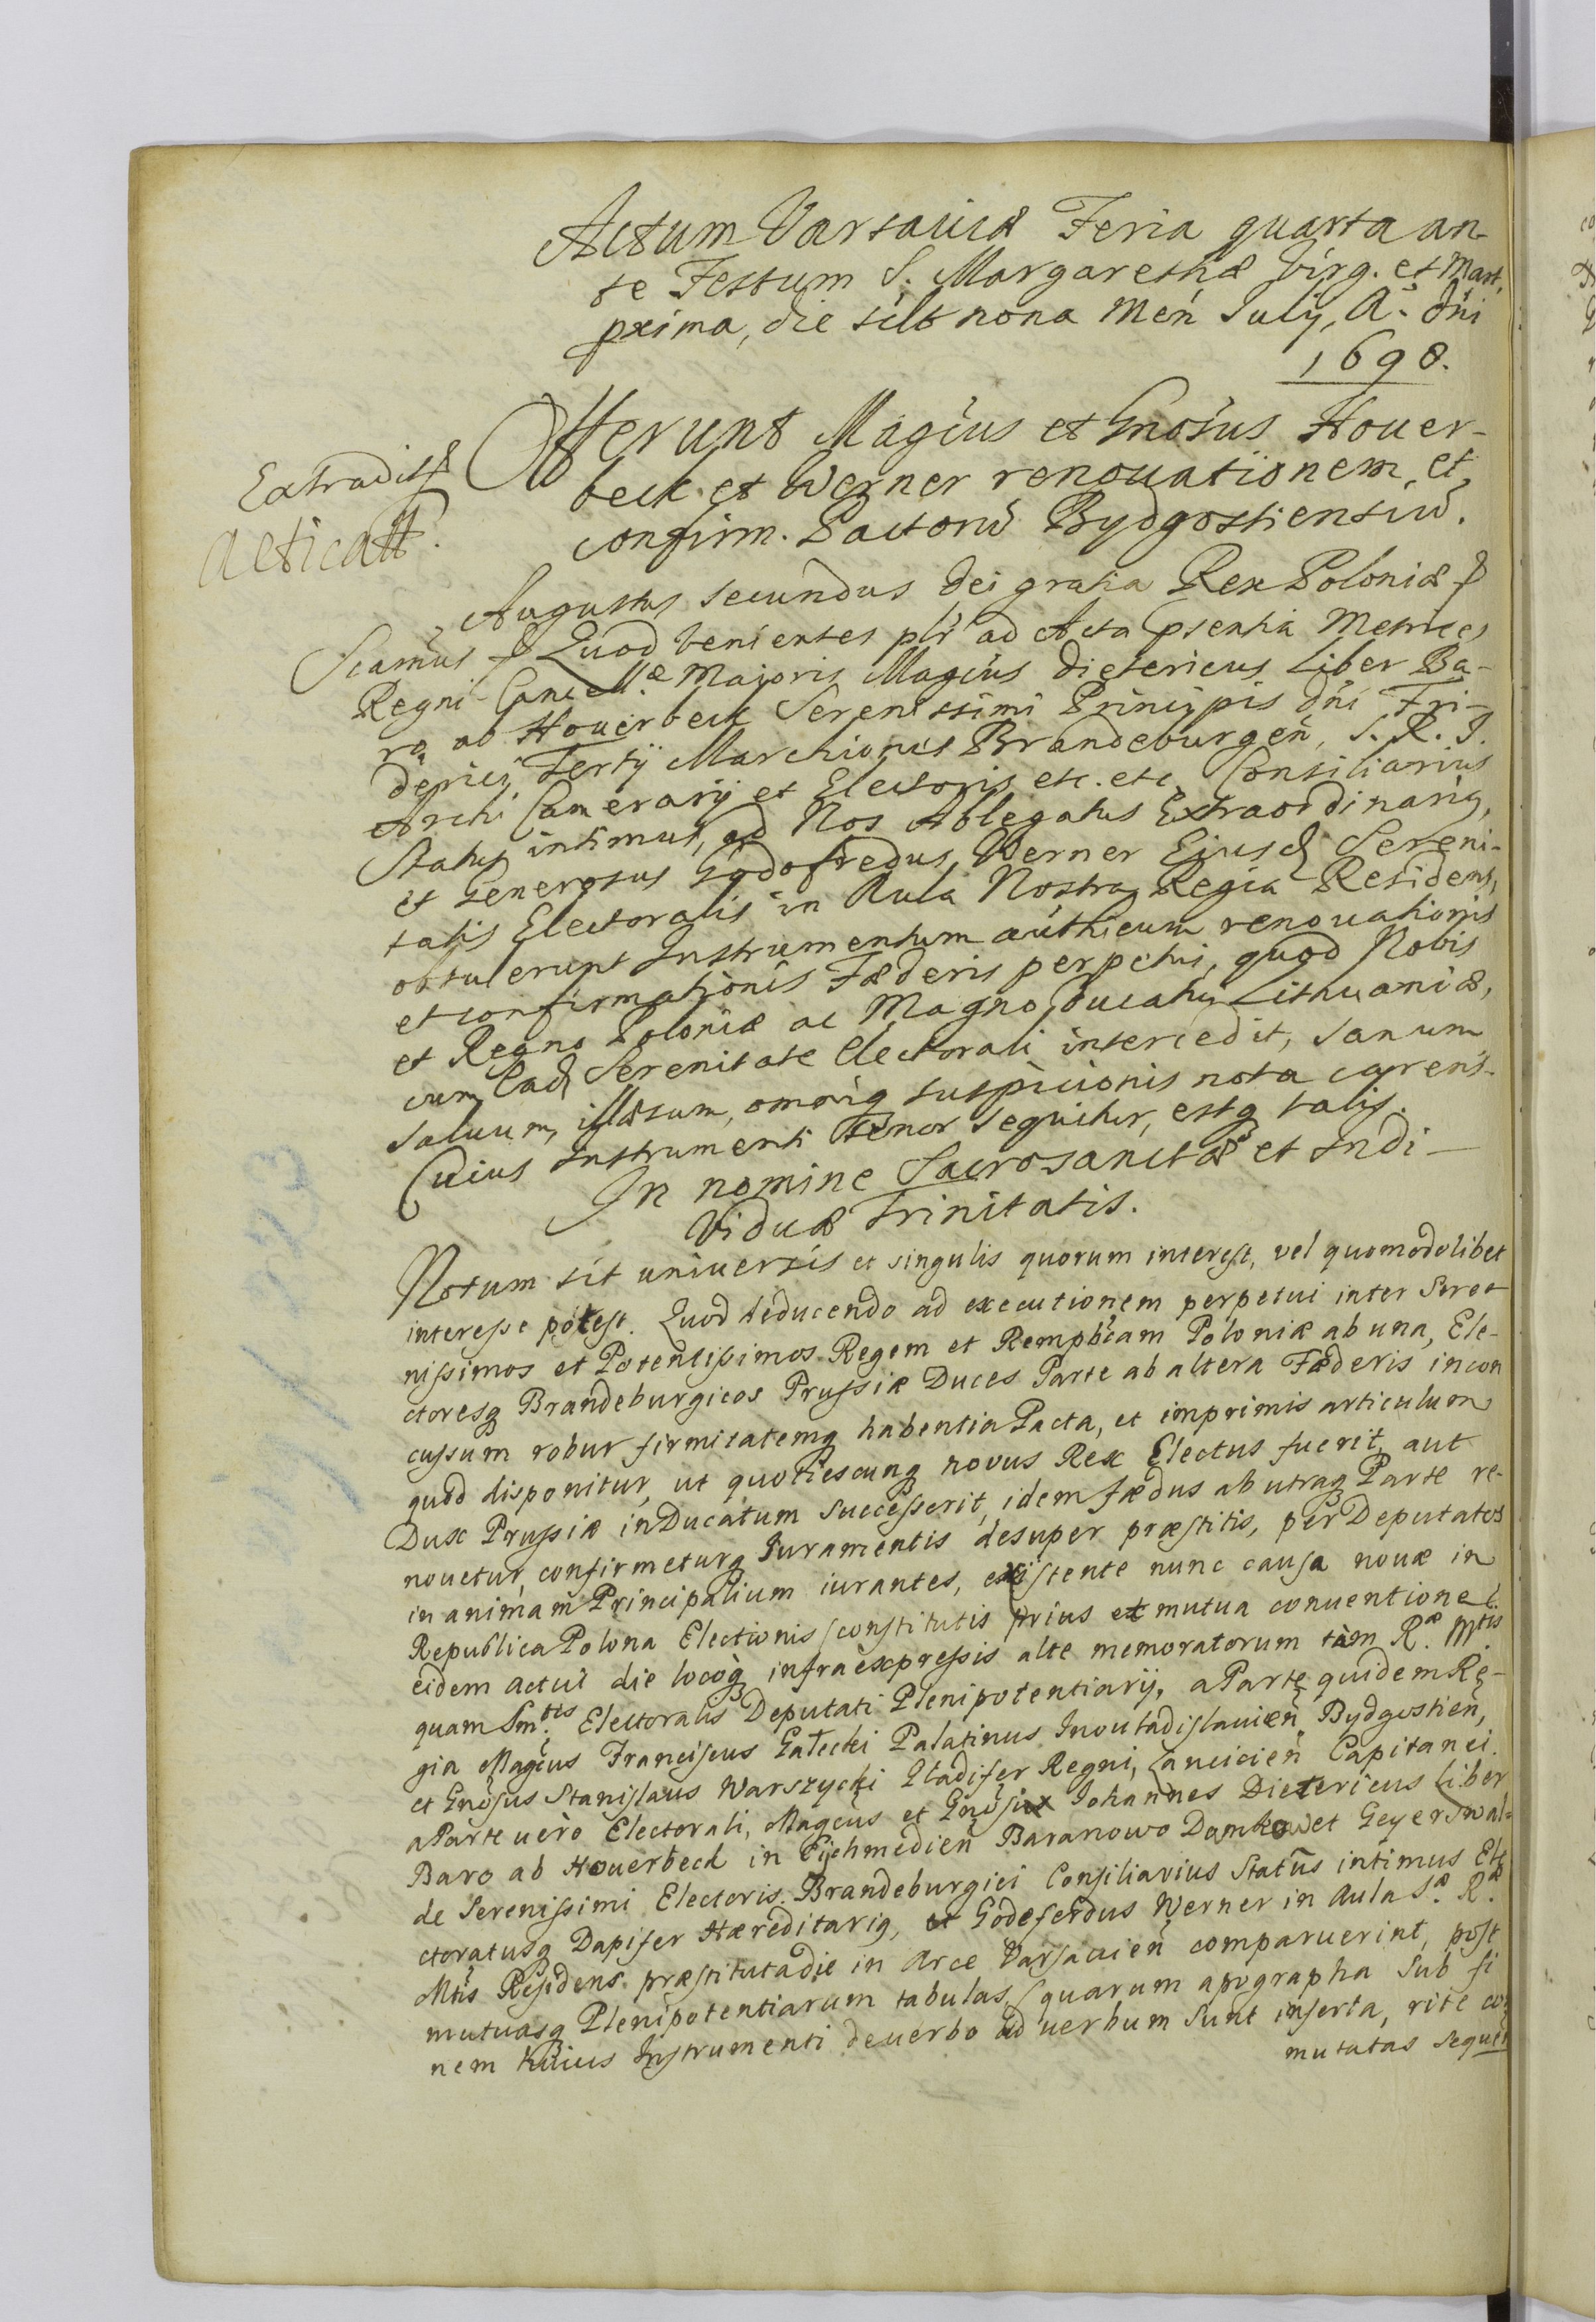 Actum Varsaviæ Feria quarta an-
te Festum S. Margarethæ Virg. et Mart.
pxima, die silt nona Men̄ July, A. Dn̄i
1698.
Extradit
Acticatt.
Offerunt Magc̄us et Gn̄osus Houer-
beck et Werner renouationem et
confirm. Pactorū Bydgostiensiū.
Augustus secundus Dei gratia Rex Poloniæ
Scamus Quod venientes plr̄ ad Acta psentia Metrices
Regni Cancellæ Majoris Magc̄us Dietericus Liber Ba-
ro ab Houerbeck Serenissimi Principis Dn̄i Fri-
derici Tertij Marchionis Brandeburgen̄, S. R. I.
Archi Camerarij et Electoris etc. etc. Consiliarius
Status intimus, ad Nos Ablegatus Extraordinariq,
et Generosus Godofredus Werner Eiusd Sereni-
tatis Electoralis in Aula Nostra Regia Residens,
obtulerunt Instrumentum authicum renouationis
et confirmationis Fæderis perpetui, quod Nobis
et Regno Poloniæ ac Magno Ducatui Lithuaniæ,
cum Ead Serenitate Electorali intercedit, sanum
saluum, illæsum, omniq suspicionis nota carens.
Cuius Instrumenti tenor sequitur, estq talis.
In nomine Sacrosanctæ et Indi-
viduæ Trinitatis.
Notum sit universis et singulis quorum interest, vel quomodolibet
interesse potest. Quod deducendo ad executionem perpetui inter Sere-
nissimos et Potentissimos Regem et Rempb̄cam Poloniæ ab una, Ele-
ctoresq Brandeburgicos Prussiæ Duces Parte ab altera Fæderis incon
cussum robur firmitatemq habentia Pacta, et imprimis articulum
quod disponitur, ut quotiescunq novus Rex Electus fuerit, aut
Dux Prussiæ in Ducatum Successerit, idem fædus ab utraq Parte re-
nouetur, confirmeturq Juramentis desuper præstitis, per Deputatos
in animam Principalium iurantes, existente nunc causa nouæ in
Republica Polona Electionis (constitutis prius ex mutua conuentione
eidem actui die locoq infraexpressis alte memoratorum tam Ræ. Mtis
quam Sm̄.tis Electoralis Deputati Plenipotentiarij, a Parte quidem Re-
gia Magc̄us Franciscus Gałecki Palatinus Inovladislauien̄ Bydgostien̄,
et Gn̄osus Stanislaus Warszycki Gladifer Regni, Lancicien̄ Capitanei.
a Parte uero Electorali, Magc̄us et Gn̄osus Johannes Dietericus Liber
Baro ab Houerbeck in Eychmedien̄ Baranowo Domkow et Geyerswal-
de Serenissimi Electoris Brandeburgici Consiliarius Status intimus Ele
ctoratusq Dapifer Hæreditariq, et Godeferdus Werner in Aula Sæ. Ræ.
Mtis Residens præstituta die in Arce Varsauien̄ comparuerint, post
mutuasq Plenipotentiarum tabulas, (quarum apographa sub fi
nem huius Instrumenti de uerbo ad uerbum sunt inserta, rite com
mutatas sequen